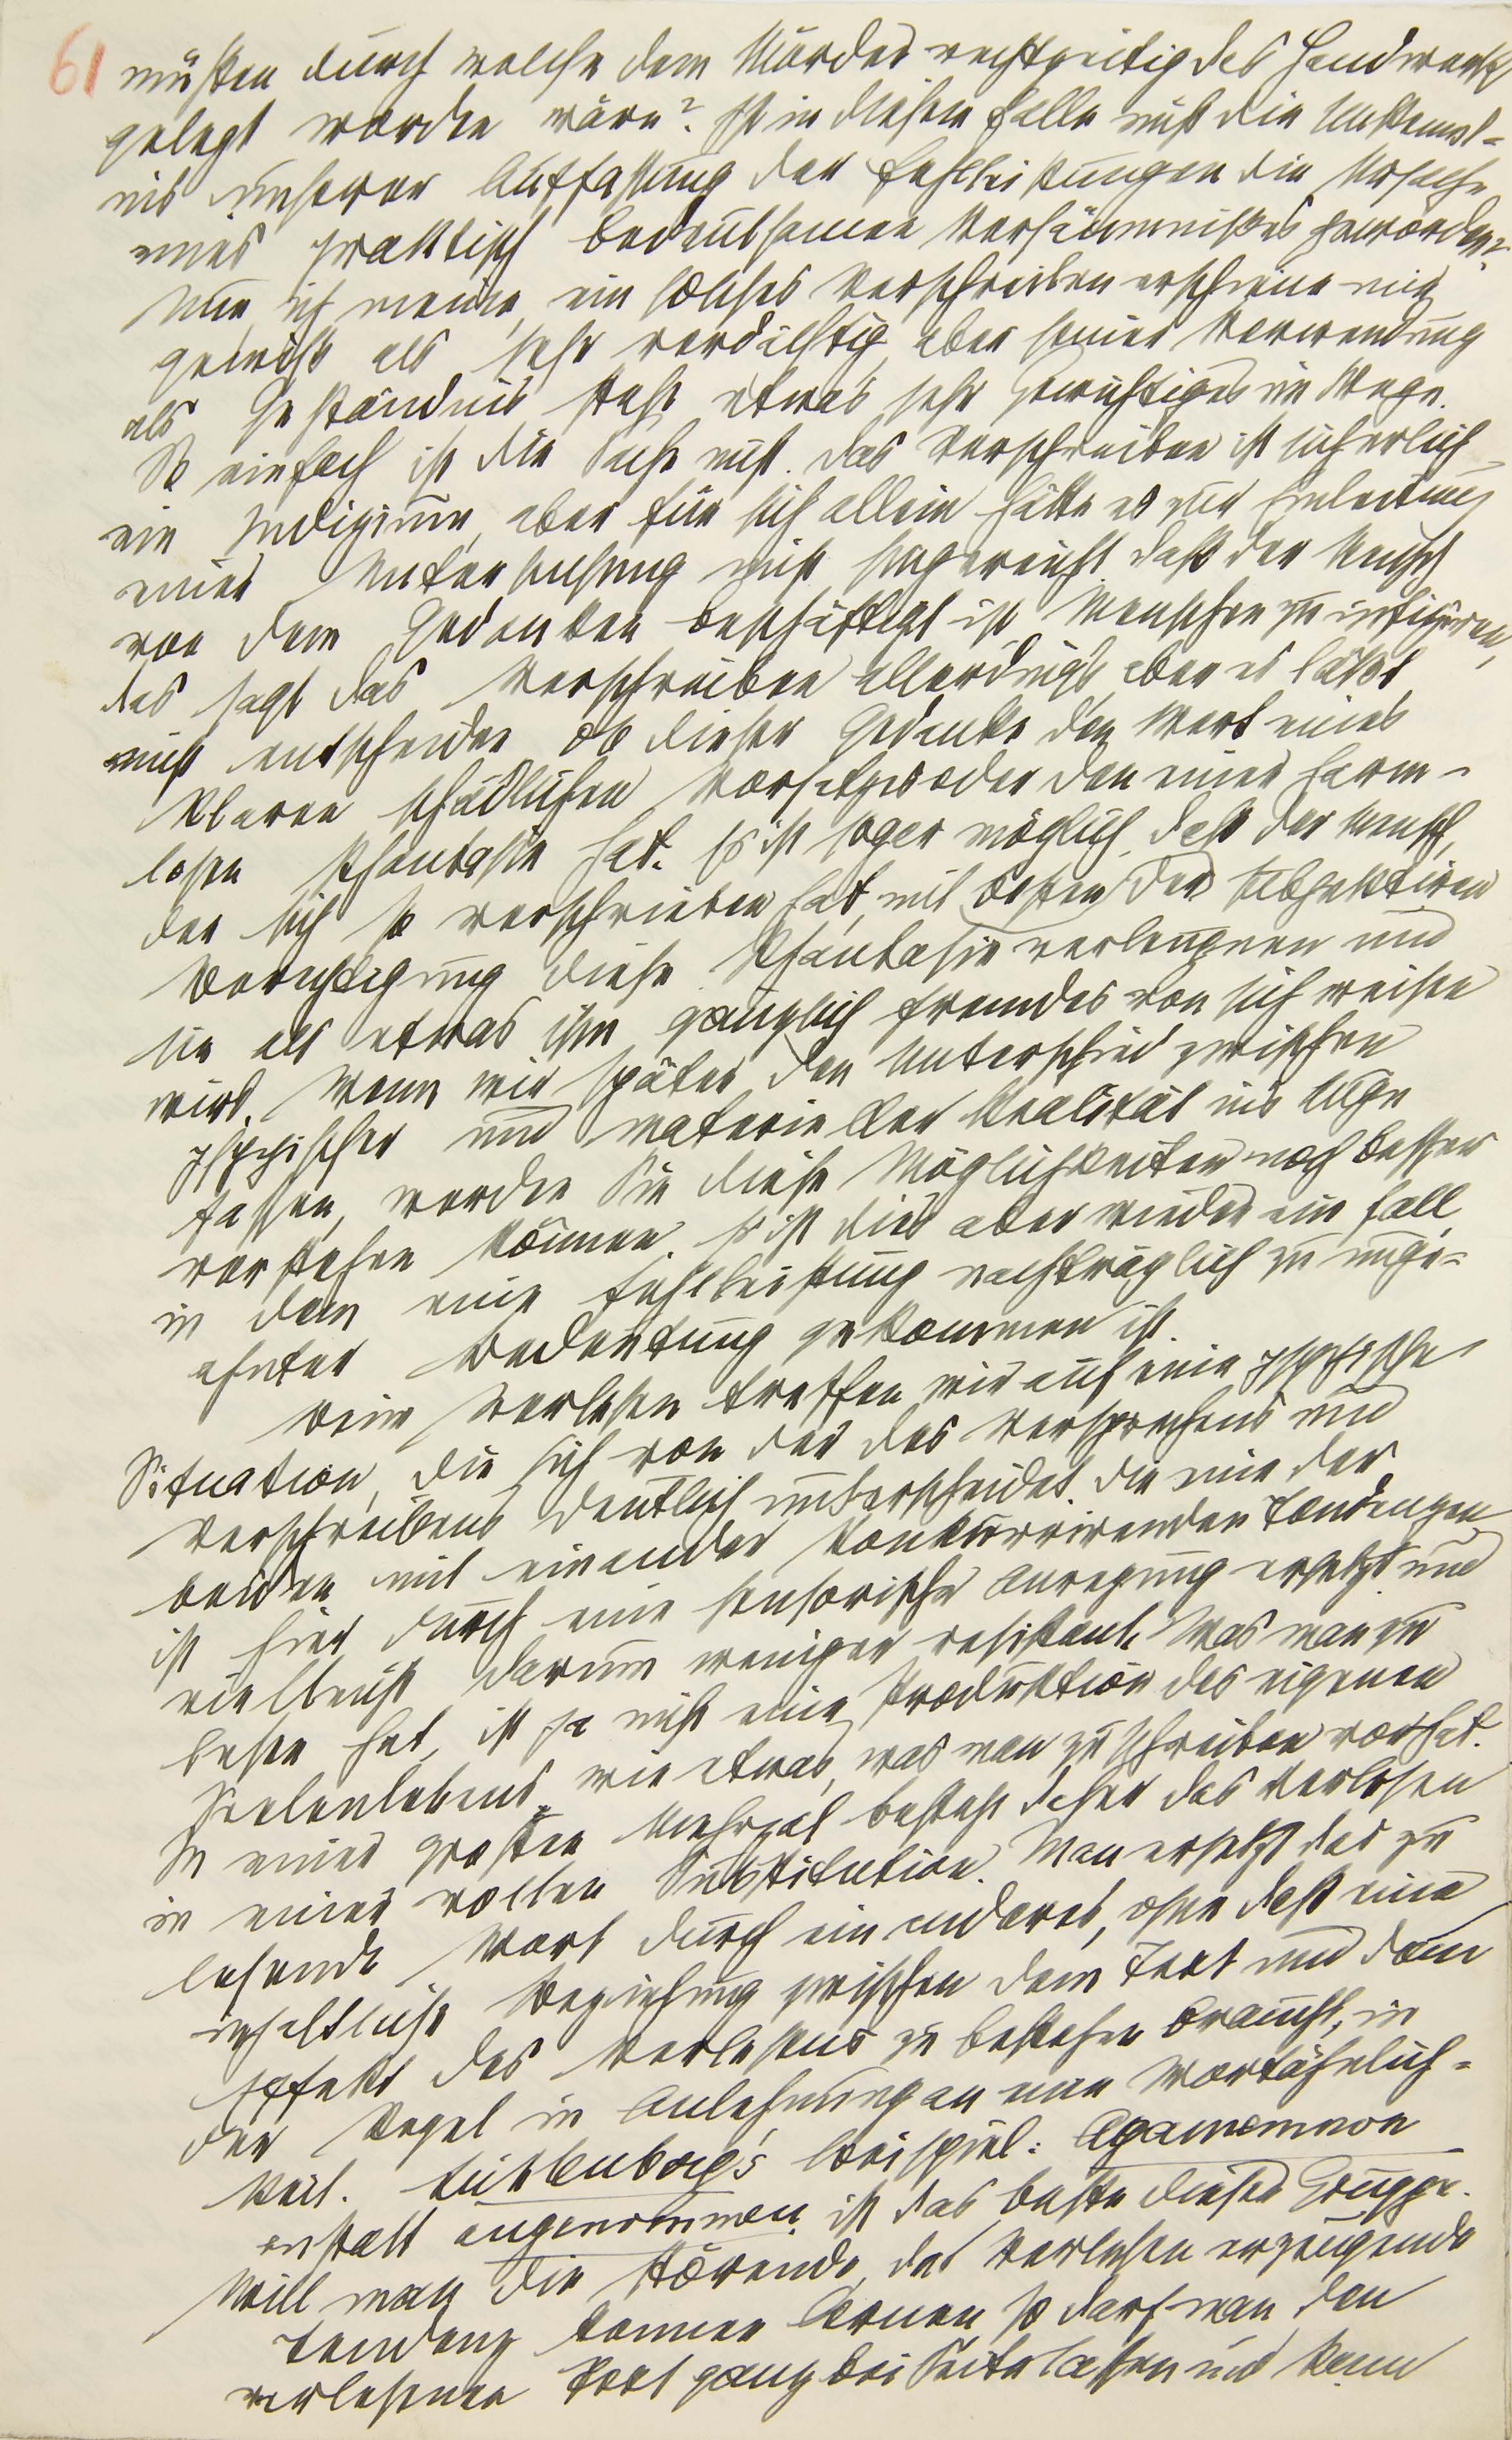 61
müssen durch welche dem Mörder rechtzeitig das Handwerk
gelegt worden wäre? Ist in diesem Falle nicht die Unkennt-
nis unserer Auffassung der Fehlleistungen die Ursache
eines praktisch bedeutsamen Versäumnisses geworden?
Nun, ich meine, ein solches Verschreiben erschiene mir
gewiss als sehr verdächtig, aber seiner Verwendung
als Geständnis steht etwas sehr Gewichtiges im Wege.
So einfach ist die Sache nicht. Das Verschreiben ist sicherlich
ein Indizium, aber für sich allein hätte es zur Einleitung
einer Untersuchung nicht hingereicht. Dass der Mensch
von dem Gedanken beschäftigt ist Menschen zu infiziren,
das sagt das Verschreiben allerdings, aber es lässt
nicht entscheiden, ob dieser Gedanke den Wert eines
klaren schädlichen Vorsatzes oder den einer harm-
losen Phantasie hat. Es ist sogar möglich, dass der Mensch,
der sich so verschrieben hat, mit bester der subjektiven
Berechtigung diese Phantasie verleugnen und
sie als etwas ihm gänzlich Fremdes von sich weisen
wird. Wenn wir später den Unterschied zwischen
psychischer und materieller Realität ins Auge
fassen, werden Sie diese Möglichkeiten noch besser
verstehen können. Es ist dies aber wieder ein Fall,
in dem eine Fehlleistung nachträglich zu unge-
ahnter Bedeutung gekommen ist.
Beim Verlesen treffen wir auf eine psychische
Situation, die sich von der des Versprechens und
Verschreibens deutlich unterscheidet. Die eine der
beiden mit einander konkurrirenden Tendenzen
ist hier durch eine sensorische Anregung ersetzt und
vielleicht darum weniger resistent. Was man zu
lesen hat, ist ja nicht eine Produktion des eigenen
Seelenlebens wie etwas, was man zu schreiben vorhat.
In einer grossen Mehrzal besteht daher das Verlesen
in einer vollen Substitution. Man ersetzt das zu
lesende Wort durch ein anderes, ohne dass eine
inhaltliche Beziehung zwischen dem Text und dem
Effekt des Verlesens zu bestehen braucht, in
der Regel in Anlehnung an eine Wortähnlich-
keit. Lichtenberg's Beispiel: Agamemnon
anstatt angenommen ist das beste dieser Gruppe.
Will man die störende, das Verlesen erzeugende
Tendenz kennen lernen, so darf man den
verlesenen Text ganz bei Seite lassen und kann